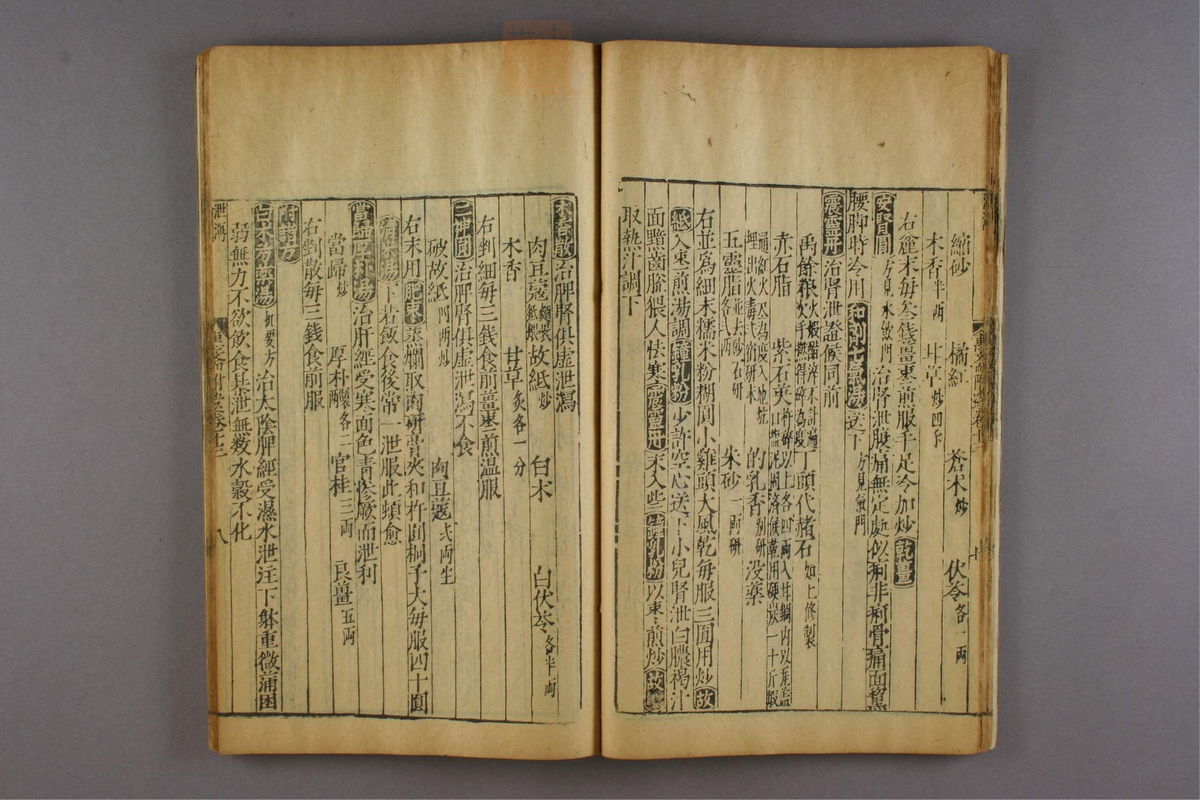 縮砂 橘紅 蒼朮炒 伏苓各一兩
木香半兩 甘草炒四下
右麄末每叁錢薑棗煎服手足冷加炒乾薑
安腎圓方見水飲門治腎泄腹痛無定處似痢非痢骨痛面
腰脚時冷用和劑七氣湯送下方見氣門
震靈丹治腎泄證候同前
禹餘粮火煅醋淬不計遍次手撚得碎為度 丁頭代赭石如上修製
赤石脂 紫石英
五靈脂 的乳香別研 沒藥
朱砂一兩研
右並為細末糯米粉糊圓小雞頭大風乾每服三圓用炒故
紙入棗煎湯調鍾乳粉少許空心送下小兒腎泄白膿褐汁
面黧齒𦜕猥人怯寒震靈丹末入些鍾乳粉以棗煎炒故
取熱汁調下
木香散治脾腎俱虛泄瀉
肉豆蔻麵裹紙煨 故紙炒 白朮 白伏苓各半兩
木香 甘草炙各一分
右剉細每三錢食前薑棗煎溫服
二神圓治脾腎俱虛泄瀉不食
破故紙四兩炒 肉豆蔻弍兩生
右末用肥棗蒸爛取肉研膏夾和杵圓桐子大每服四十圓
下若飯食後常一泄服此頓愈
當歸厚朴湯治肝經受寒面色青慘厥而泄利
當歸炒 厚朴釀各二 官桂三兩 良薑五兩
右剉散每三錢食前服
附諸方
白朮芍藥湯機要方治太陰脾經受濕水泄注下躰重微滿困
弱無力不欲飲食暴泄無數水穀不化
泄瀉 八